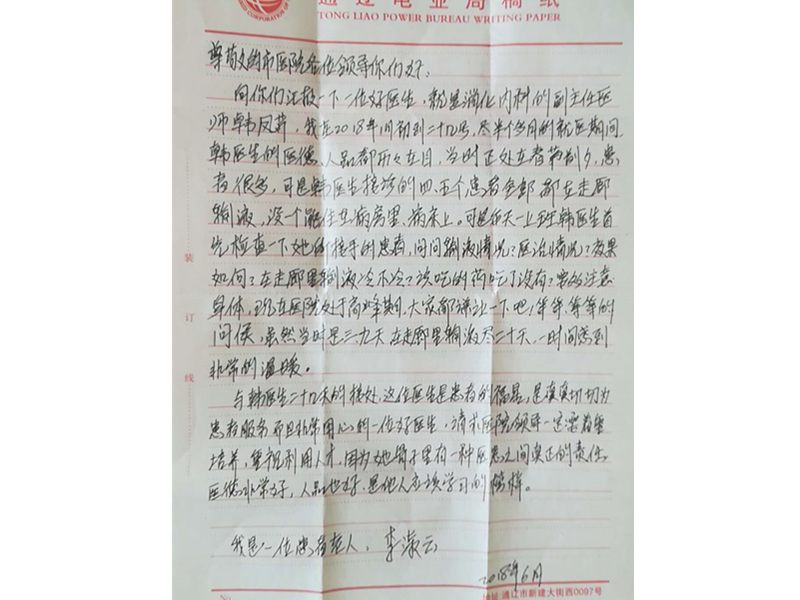 通辽电业局稿纸
TONG LIAO POWER BUREAU WRITING PAPER
尊敬的市医院各位领导你们好:
向你们汇报一下一位好医生,就是消化内科的副主任医
师韩凤芹,我在2018年1月初到二十几号,尽半个多月的就医期间,
韩医生的医德、人品都历历在目,当时正处在春节前夕,患
者很多,可是韩医生接诊的四、五个患者全部都在走廊
输液,没一个能住在病房里、病床上。可是每天一上班韩医生首
先检查一下她所接手的患者,问问输液情况?医治情况?效果
如何?在走廊里输液冷不冷?该吃的药吃了没有?要多注意
身体,现在医院处于高峰期,大家都谦让一下吧!等等,等等的
问候,虽然当时是三九天,在走廊里输液尽二十天,一时间感到
非常的温暖。
与韩医生二十几天的接处,这位医生是患者的福星,是真真切切为
患者服务而且非常用心的一位好医生,请求医院领导一定要着重
培养,重视利用人才,因为她骨子里有一种医患之间真正的责任。
医德非常好,人品也好,是他人应该学习的榜样。
我是一位患者老人,李淑云
2018年6月
装
订
线
地址 通辽市新建大街西0097号